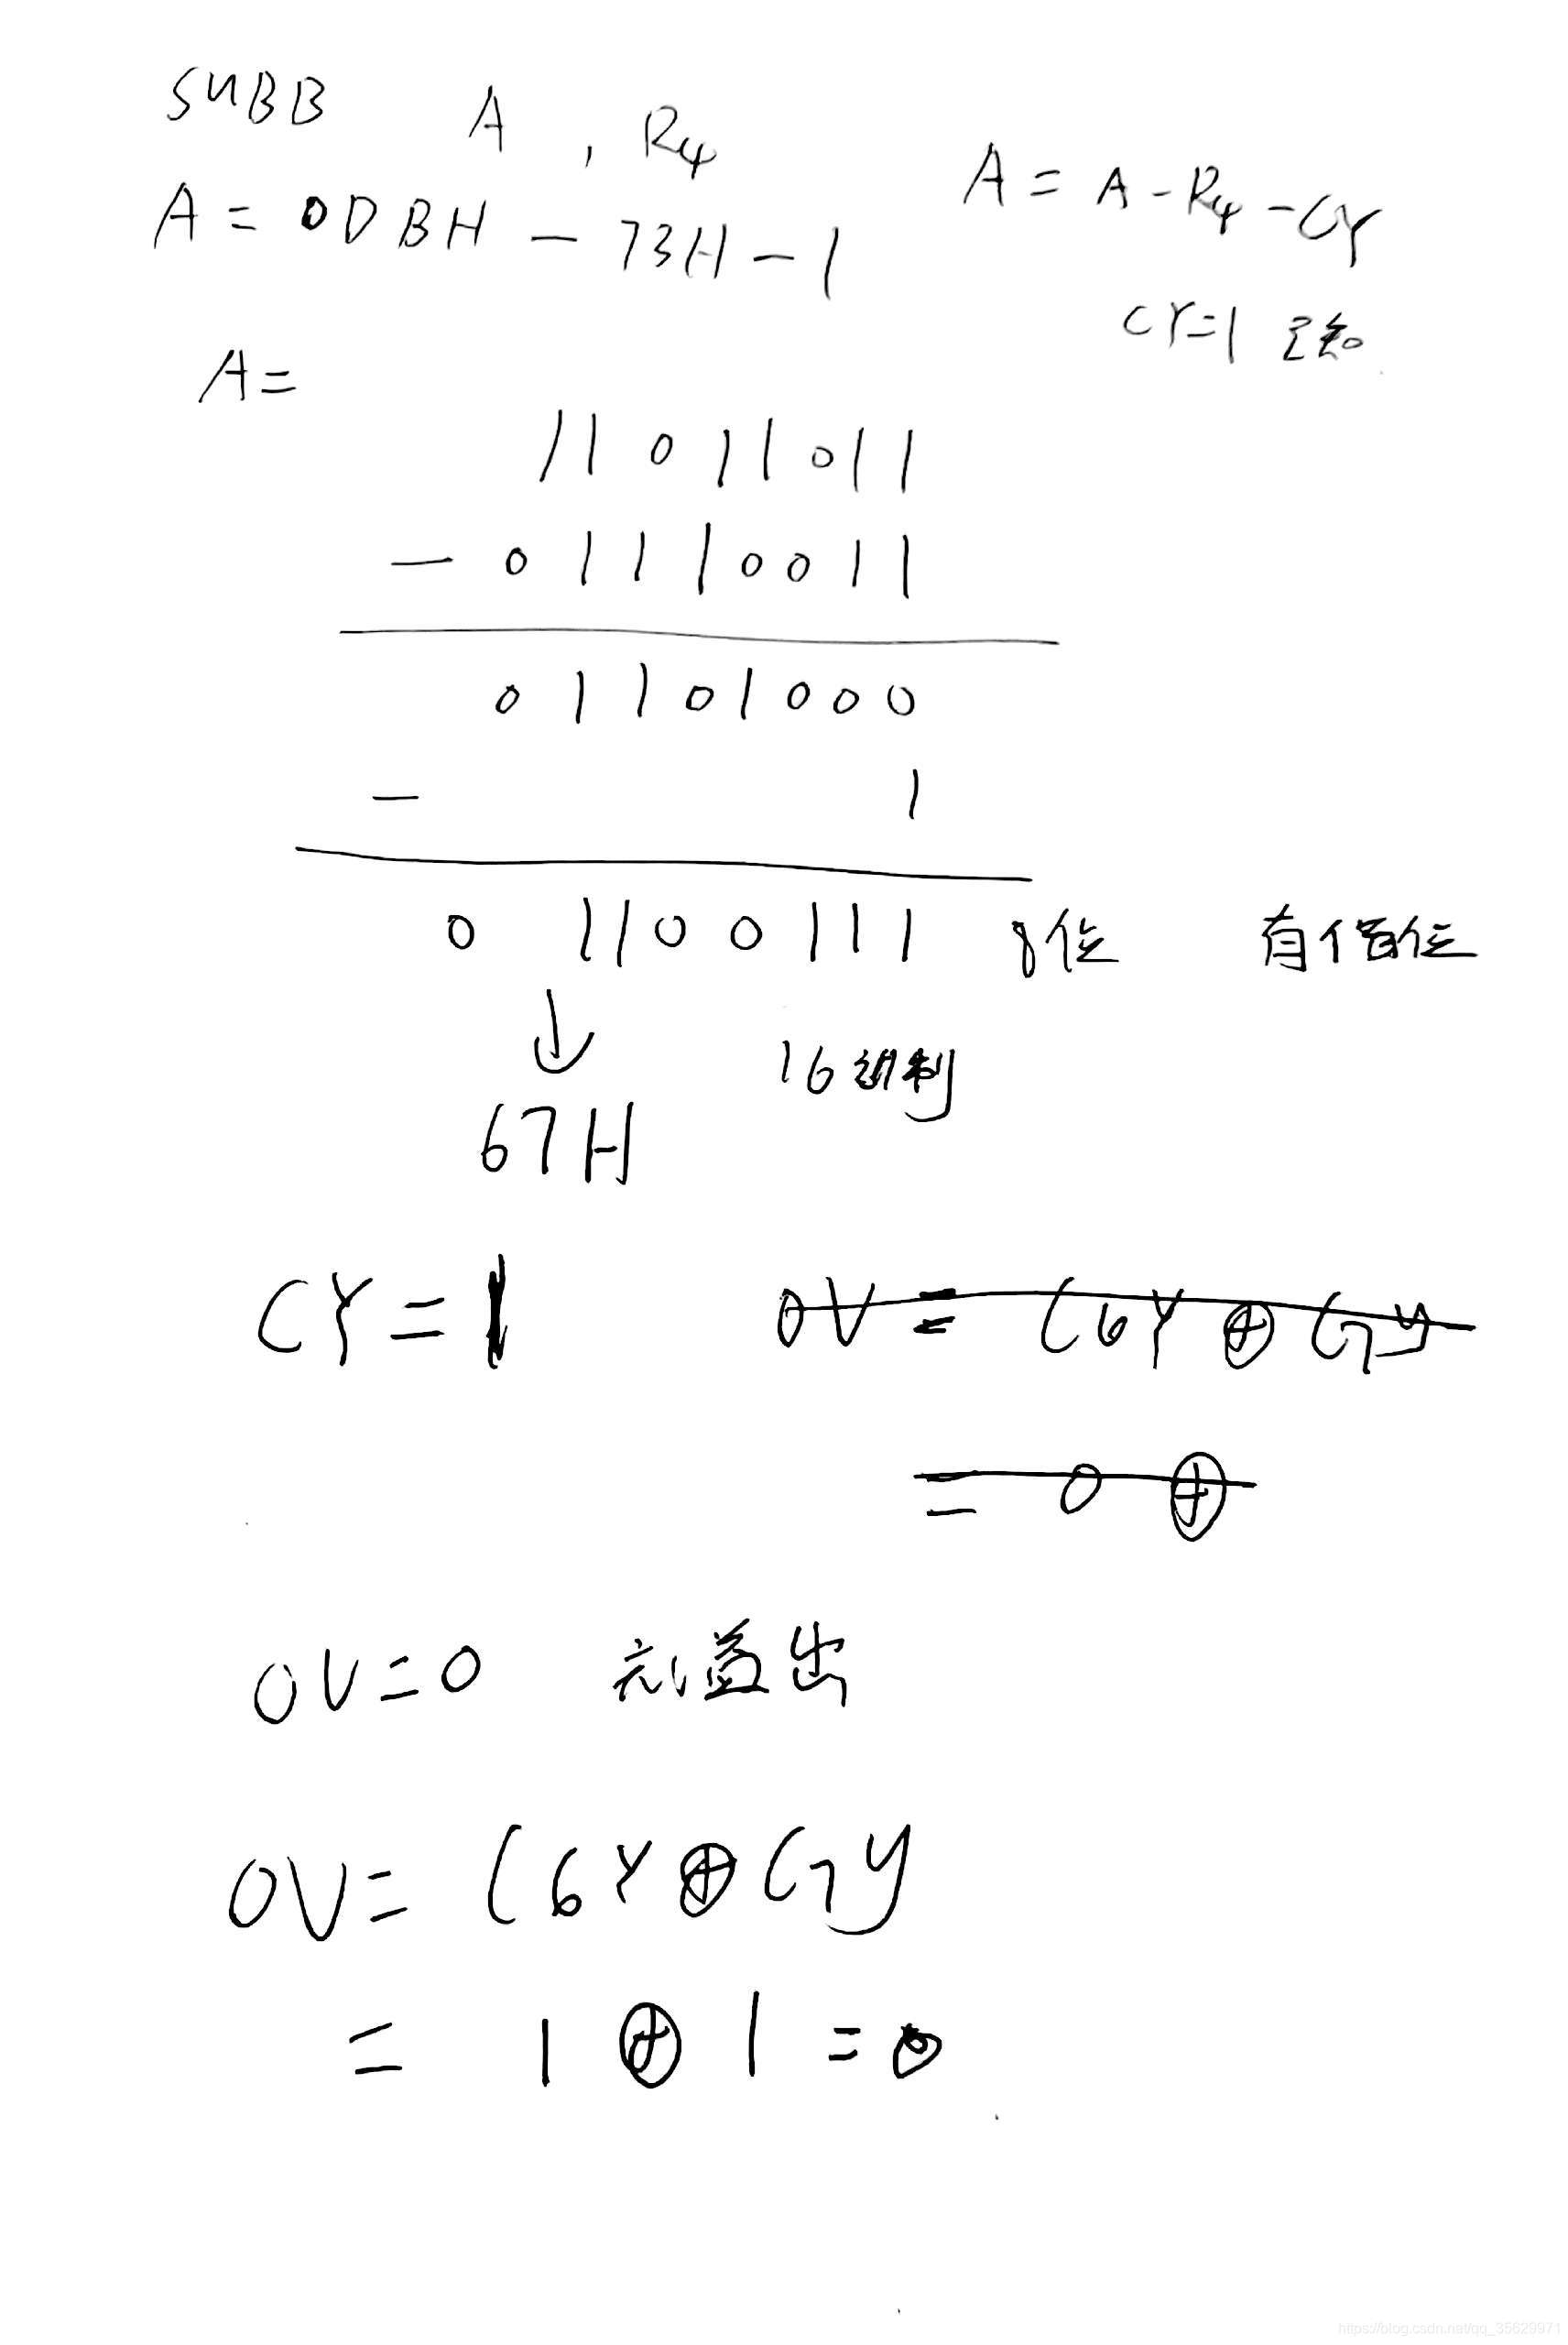 SUBB A , R4
A = 0DBH - 73H - 1
A = A - R4 - CY
CY=1 已知
A=
11011011
- 01110011
01101000
- 1
01100111 8位 有借位
↓ 16进制
67H
CY=1
OV = C6Y ⊕ C7Y
= 0 ⊕
OV=0 无溢出
OV= C6Y ⊕ C7Y
= 1 ⊕ 1 = 0
https://blog.csdn.net/qq_35629971